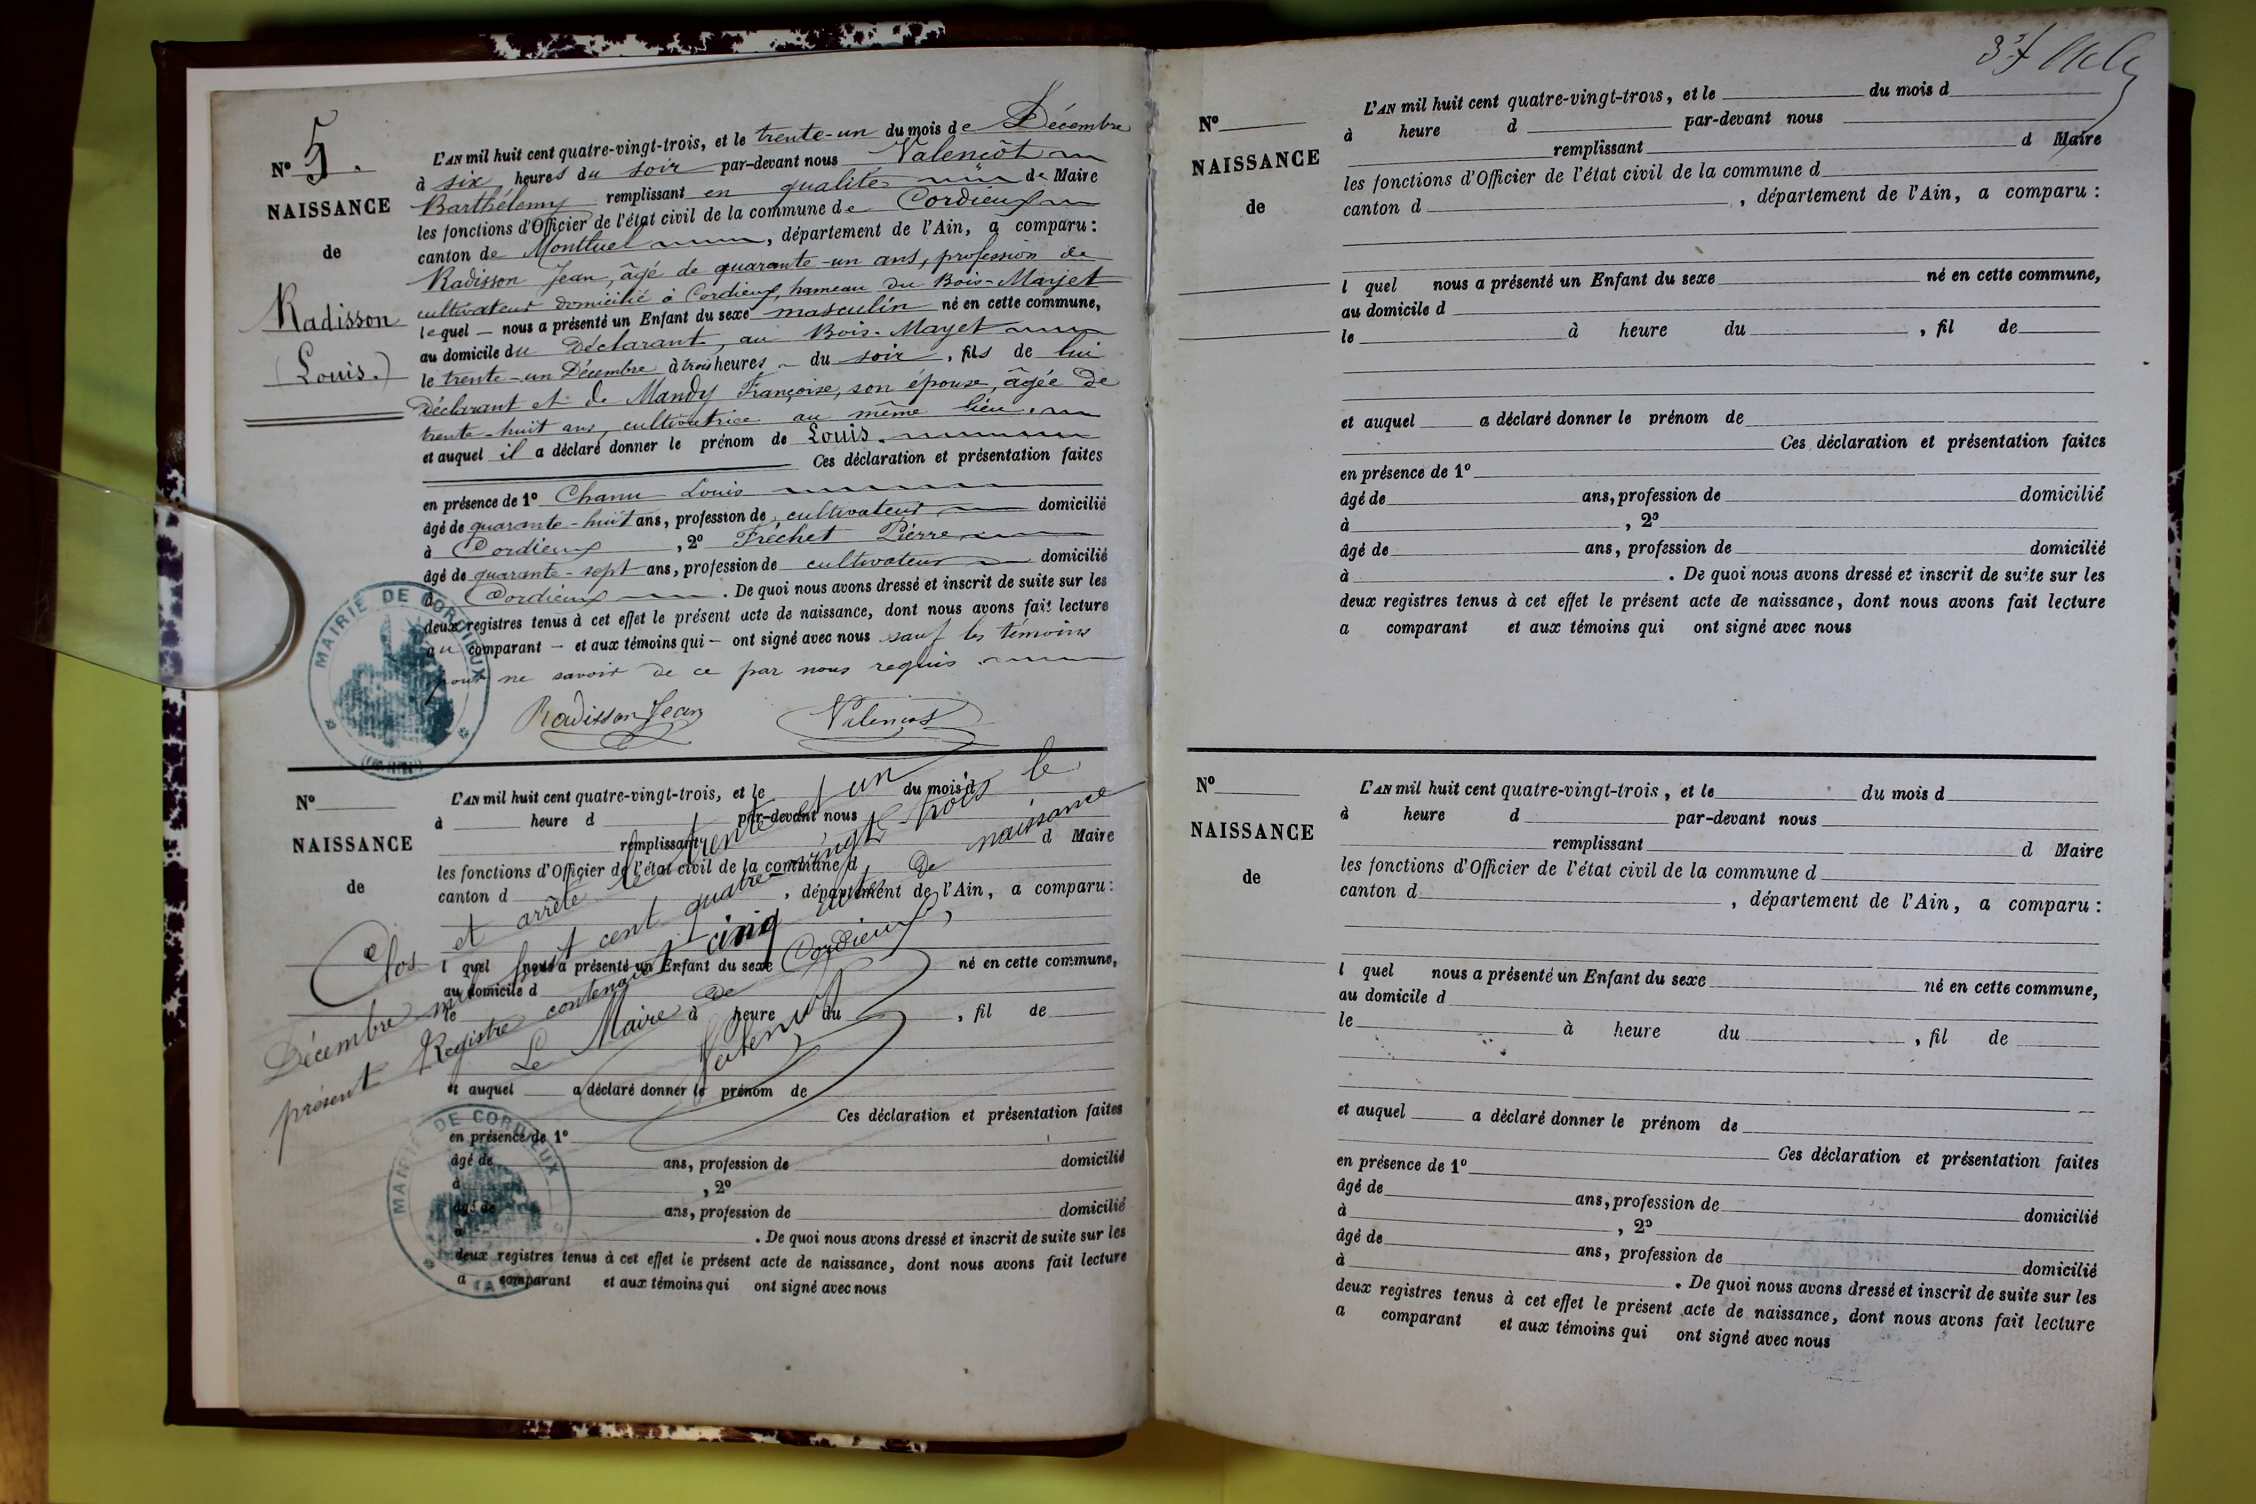 Nº 5.
NAISSANCE
de
Radisson
(Louis.)
L'AN mil huit cent quatre-vingt-trois, et le trente-un du mois de Décembre
à six heures du soir par-devant nous Valençôt
Barthélemy remplissant en qualité de Maire
les fonctions d'Officier de l'état civil de la commune de Cordieux
canton de Montluel, département de l'Ain, a comparu:
Radisson Jean, âgé de quarante-un ans, profession de
cultivateur domicilié à Cordieux, hameau du Bois-Mayet
lequel — nous a présenté un Enfant du sexe masculin né en cette commune,
au domicile du Déclarant, au Bois-Mayet
le trente-un Décembre à trois heures du soir, fils de lui
Déclarant et de Mandy Françoise, son épouse, âgée de
trente-huit ans, cultivatrice au même lieu.
et auquel il a déclaré donner le prénom de Louis.
Ces déclaration et présentation faites
en présence de 1º Chanu Louis
âgé de quarante-huit ans, profession de cultivateur domicilié
à Cordieux, 2º Fréchet Pierre
âgé de quarante-sept ans, profession de cultivateur domicilié
à Cordieux. De quoi nous avons dressé et inscrit de suite sur les
deux registres tenus à cet effet le présent acte de naissance, dont nous avons fait lecture
au comparant — et aux témoins qui — ont signé avec nous sauf les témoins
pour ne savoir de ce par nous requis.
Radisson Jean Valençot
MAIRIE DE CORDIEUX
(AIN)
Nº
NAISSANCE
de
L'AN mil huit cent quatre-vingt-trois, et le du mois d
à heure d par-devant nous
remplissant d Maire
les fonctions d'Officier de l'état civil de la commune d
canton d , département de l'Ain, a comparu:
l quel nous a présenté un Enfant du sexe né en cette commune,
au domicile d
le à heure du , fil de
et auquel a déclaré donner le prénom de
Ces déclaration et présentation faites
en présence de 1º
âgé de ans, profession de domicilié
à , 2º
âgé de ans, profession de domicilié
à . De quoi nous avons dressé et inscrit de suite sur les
deux registres tenus à cet effet le présent acte de naissance, dont nous avons fait lecture
a comparant et aux témoins qui ont signé avec nous
Clos et arrêté le trente et un
Décembre mil huit cent quatre-vingt-trois le
présent Registre contenant cinq actes de naissance
Le Maire de Cordieux,
Valençot
MAIRIE DE CORDIEUX
(AIN)
Nº
NAISSANCE
de
L'AN mil huit cent quatre-vingt-trois, et le du mois d
à heure d par-devant nous
remplissant d Maire
les fonctions d'Officier de l'état civil de la commune d
canton d , département de l'Ain, a comparu:
l quel nous a présenté un Enfant du sexe né en cette commune,
au domicile d
le à heure du , fil de
et auquel a déclaré donner le prénom de
Ces déclaration et présentation faites
en présence de 1º
âgé de ans, profession de domicilié
à , 2º
âgé de ans, profession de domicilié
à . De quoi nous avons dressé et inscrit de suite sur les
deux registres tenus à cet effet le présent acte de naissance, dont nous avons fait lecture
a comparant et aux témoins qui ont signé avec nous
Nº
NAISSANCE
de
L'AN mil huit cent quatre-vingt-trois, et le du mois d
à heure d par-devant nous
remplissant d Maire
les fonctions d'Officier de l'état civil de la commune d
canton d , département de l'Ain, a comparu:
l quel nous a présenté un Enfant du sexe né en cette commune,
au domicile d
le à heure du , fil de
et auquel a déclaré donner le prénom de
Ces déclaration et présentation faites
en présence de 1º
âgé de ans, profession de domicilié
à , 2º
âgé de ans, profession de domicilié
à . De quoi nous avons dressé et inscrit de suite sur les
deux registres tenus à cet effet le présent acte de naissance, dont nous avons fait lecture
a comparant et aux témoins qui ont signé avec nous